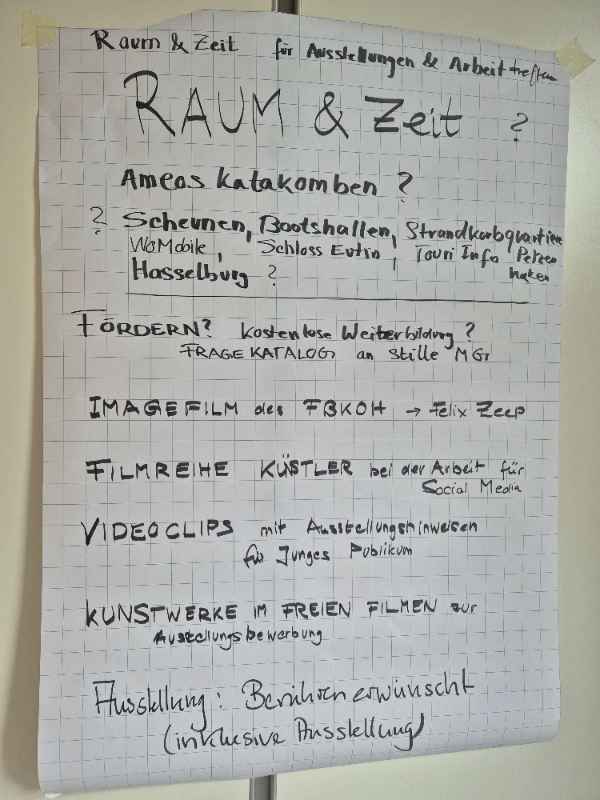 Raum & Zeit für Ausstellungen & Arbeitstreffen
RAUM & Zeit ?
Ameos Katakomben ?
? Scheunen, Bootshallen, Strandkorbquartiere
WoMobile, Schloss Eutin, Touri Info Pelzer
haken
Hasselburg ?
FÖRDERN? kostenlose Weiterbildung?
FRAGE KATALOG an stille MGr
IMAGEFILM des FBKOH → Felix Zeep
FILMREIHE KÜSTLER bei der Arbeit für
Social Media
VIDEOCLIPS mit Ausstellungshinweisen
für Junges Publikum
KUNSTWERKE IM FREIEN FILMEN zur
Austellungsbewerbung
Ausstellung: Berühren erwünscht
(inklusive Ausstellung)